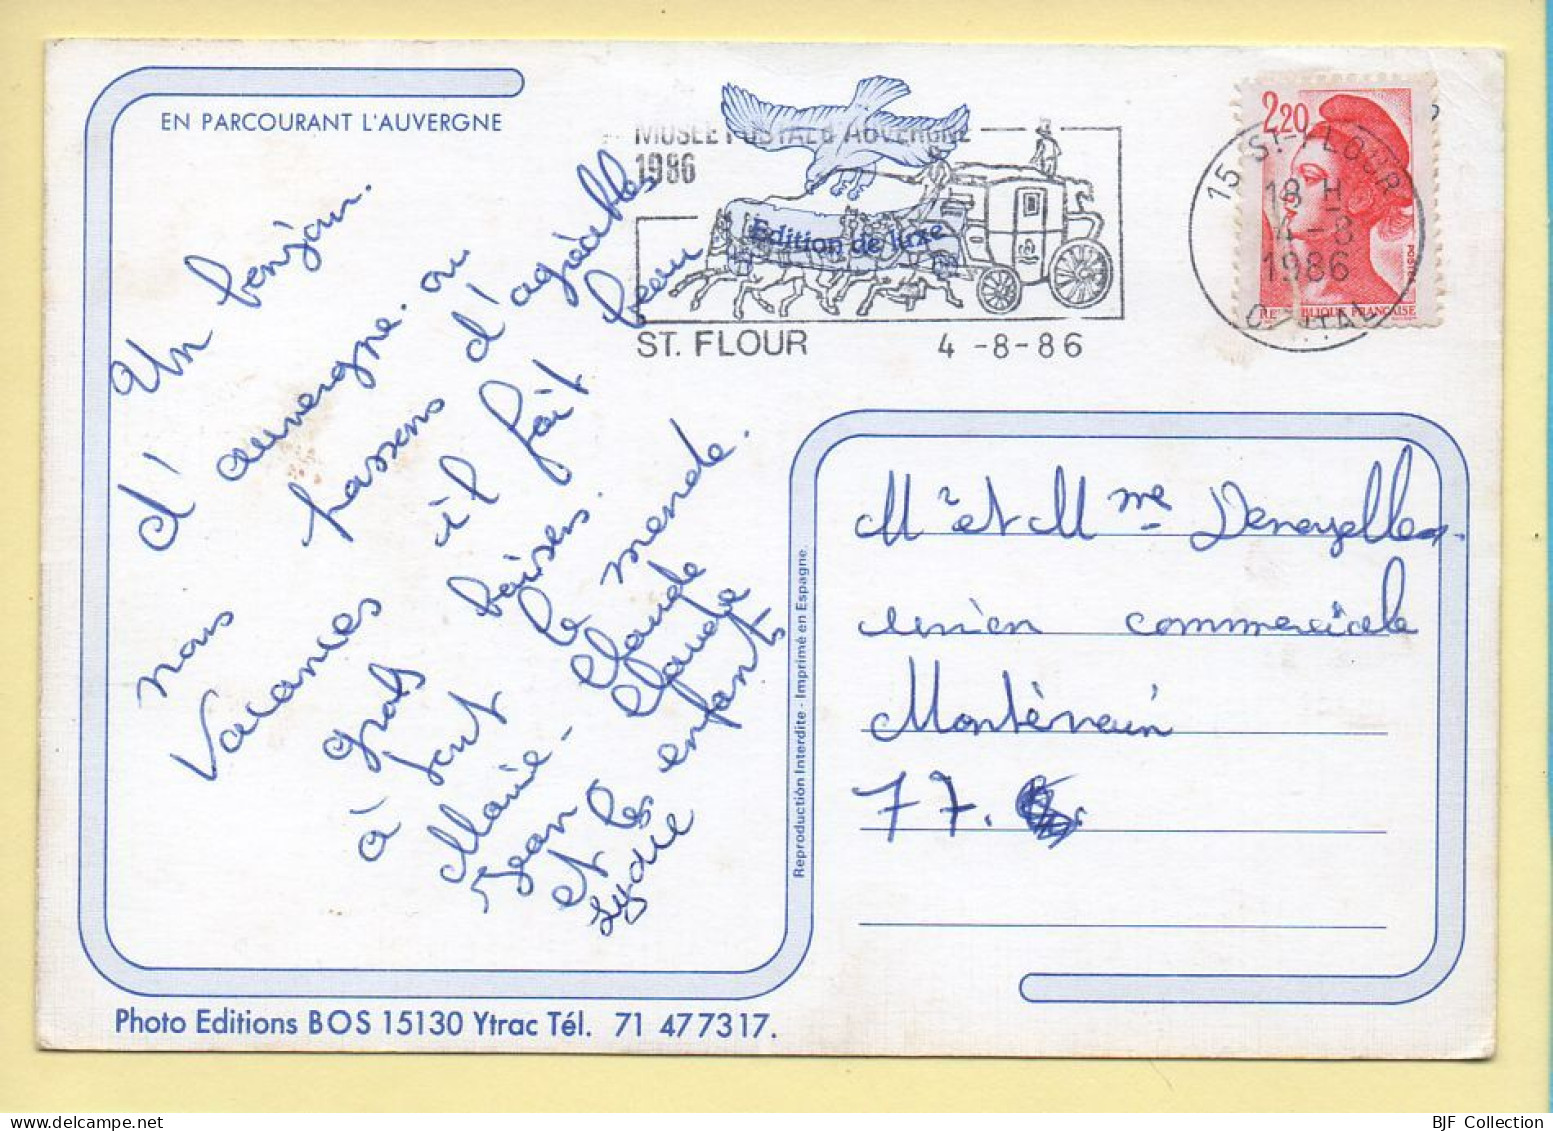 EN PARCOURANT L'AUVERGNE
MUSEE POSTALE AUVERGNE
1986
Edition de luxe
ST. FLOUR 4 -8-86
2,20
15 ST-FLOUR
18 H
4-8
1986
POSTES
RE BLIQUE FRANÇAISE
Un bonjour
d'auvergne. ou
nous passons d'agréables
Vacances il fait beau
gros baisers.
à tout le monde.
Marie-Claude
Jean Claude
et les enfants
Lydie
Mr et Mme
union commerciale
Montévrain
77.
Reproduction Interdite - Imprimé en Espagne.
Photo Editions BOS 15130 Ytrac Tél. 71 477317.
BJF Collection